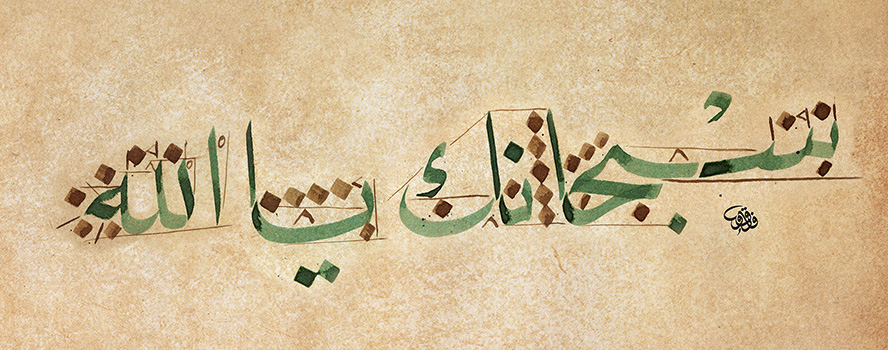 سُبْحانك يا الله